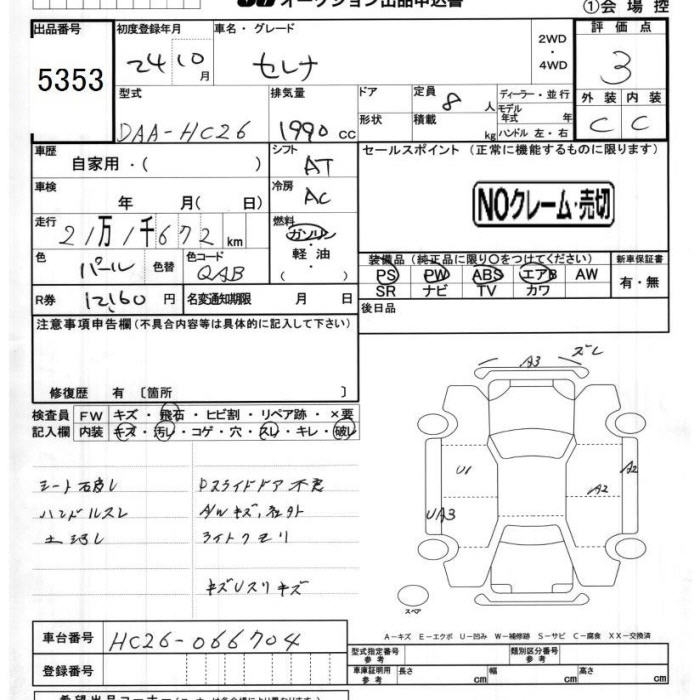 オークション出品申込書
①会場控
出品番号 初度登録年月 車名・グレード 2WD・4WD 評価点
5353 24 10月 セレナ 3
型式 排気量 ドア 定員 8人 ディーラー・並行 外装 内装
DAA-HC26 1990cc 形状 積載 kg モデル年式 年 ハンドル 左・右 C C
車歴 自家用・( ) シフト AT セールスポイント (正常に機能するものに限ります)
車検 年 月( 日) 冷房 AC NOクレーム・売切
走行 21万1千672km 燃料 ガソリン・軽油・( )
色 パール 色替 色コード QAB 装備品(純正品に限り○をつけてください) 新車保証書
PS PW ABS エアB AW 有・無
SR ナビ TV カワ
R券 12,160円 名変通知期限 月 日 後日品
注意事項申告欄(不具合内容等は具体的に記入して下さい)
修復歴 有〔箇所 〕
検査員 FW キズ・飛石・ヒビ割・リペア跡・×要
記入欄 内装 キズ・汚レ・コゲ・穴・スレ・キレ・破レ
A3 ズレ
シート破レ Pスライドドア不良 U1 A2 A2
ハンドルスレ A/Wキズ、社外 UA3
ライトクモリ
キズUスリキズ
スペア
A−キズ E−エクボ U−凹み W−補修跡 S−サビ C−腐食 XX−交換済
車台番号 HC26-066704 型式指定番号 参考 類別区分番号 参考
登録番号 車庫証明用 参考 長さ cm 幅 cm 高さ cm
希望出品コーナー